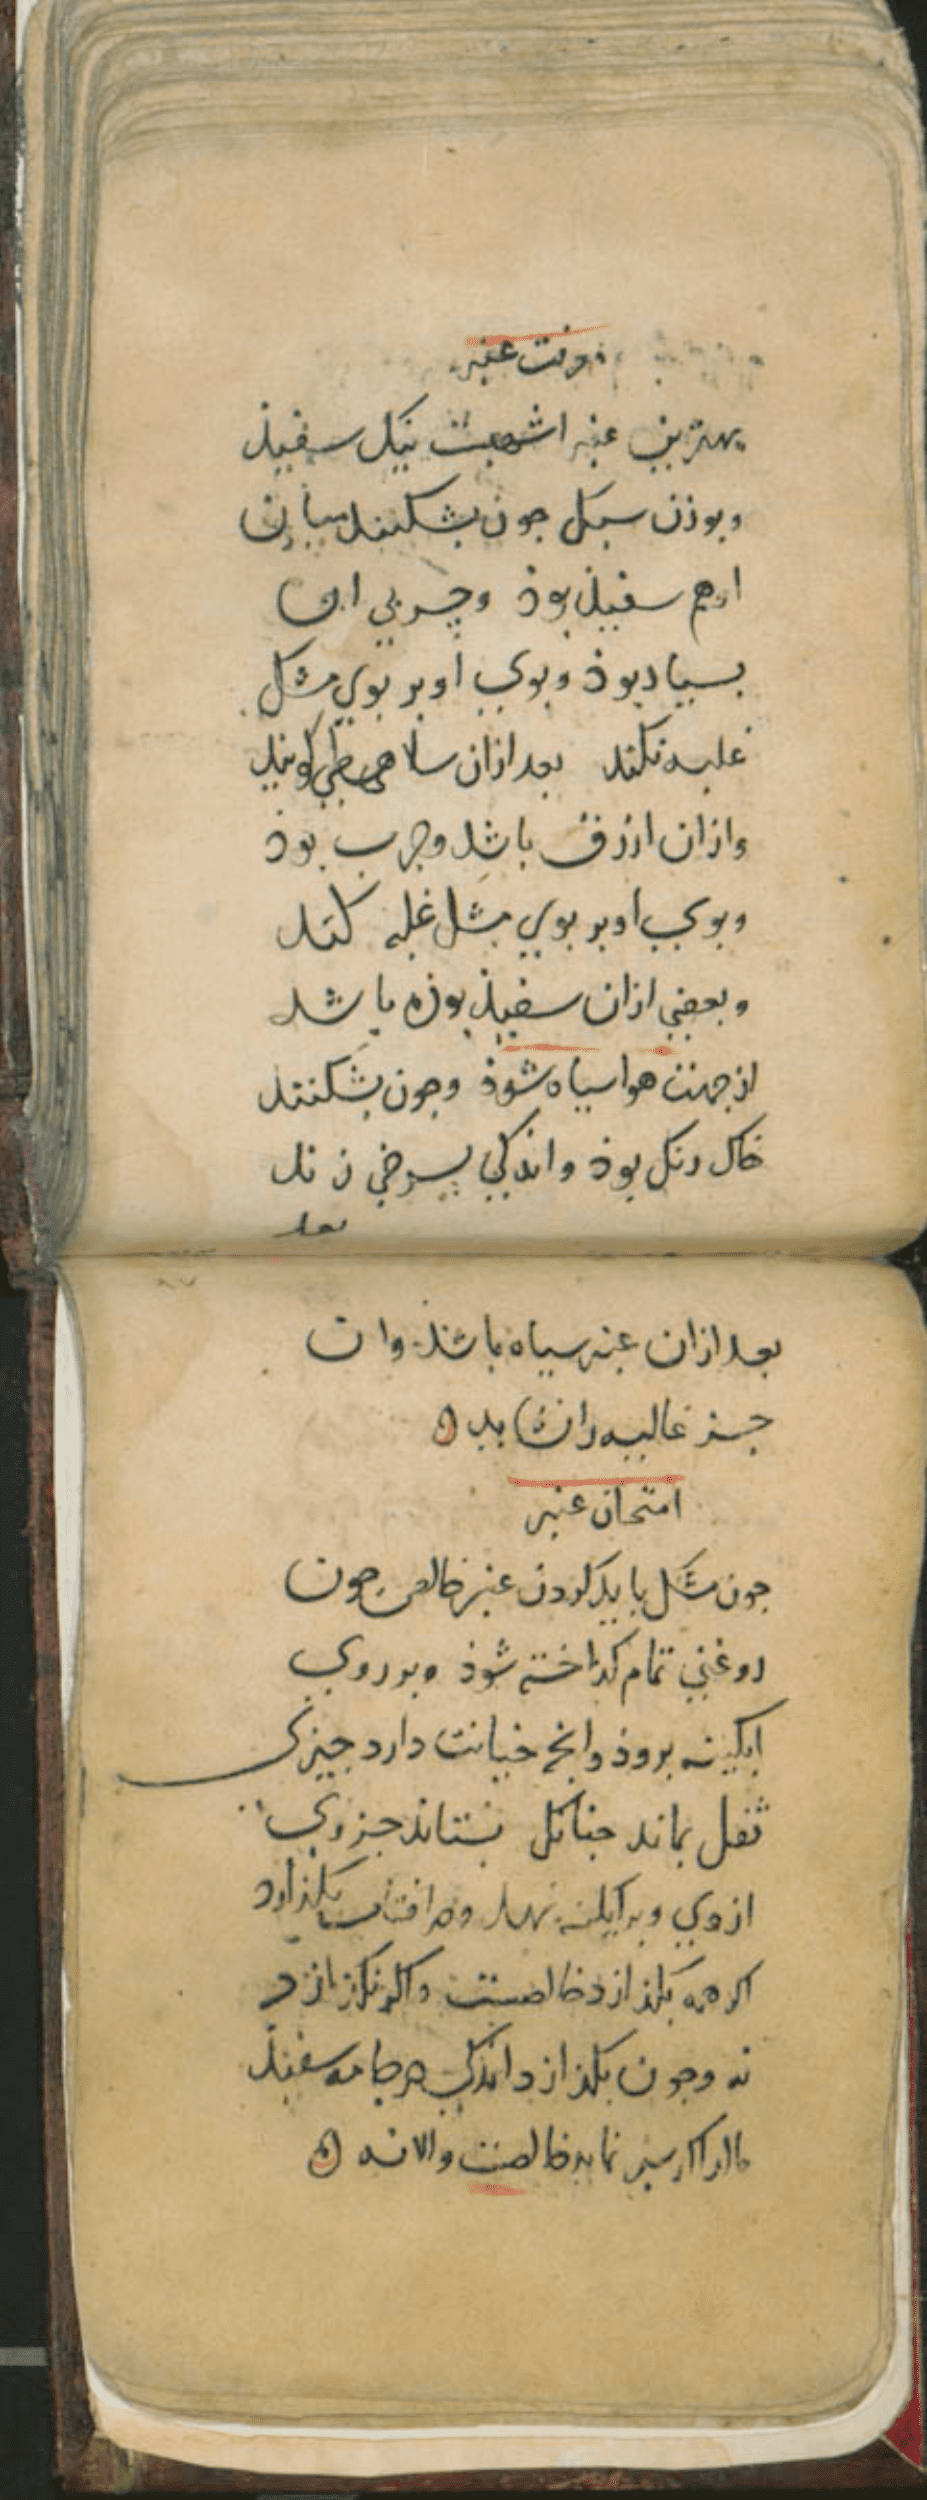 معرفت عنبر
بهترین عنبر اشهبست نیک سفیذ
وبوزن سبک جون بشکنند میان
او هم سفیذ بوذ وچربی ان
بسیار بوذ وبوی او بر بوی مشک
غلبه نکند بعد ازان سلاهطی کویند
وازان ازرق باشد وجرب بوذ
وبوی او بر بوی مشک غلبه کند
وبعضی ازان سفیذ بوذه باشد
از جهت هوا سیاه شوذ وجون بشکنند
خاک رنک بوذ واندکی بسرخی زند
بعد
۹۷
بعد ازان عنبر سیاه باشذ وان
جز غالیه را نشاید
امتحان عنبر
جون مشک باید کردن عنبر خالص جون
روغنی تمام کداخته شوذ وبر روی
ابکینه بروذ وانچ خیانت دارد جیزکی
ثفل بماند جنانک بستاند جزوی
ازوی وبر ابکینه نهد ودر افتاب بکذارد
اکر همه بکذازد خالصست واکر نکذازد
نه وجون بکذازد اندکی در جامه سفیذ
مالد اکر سبز نماید خالصست والا نه